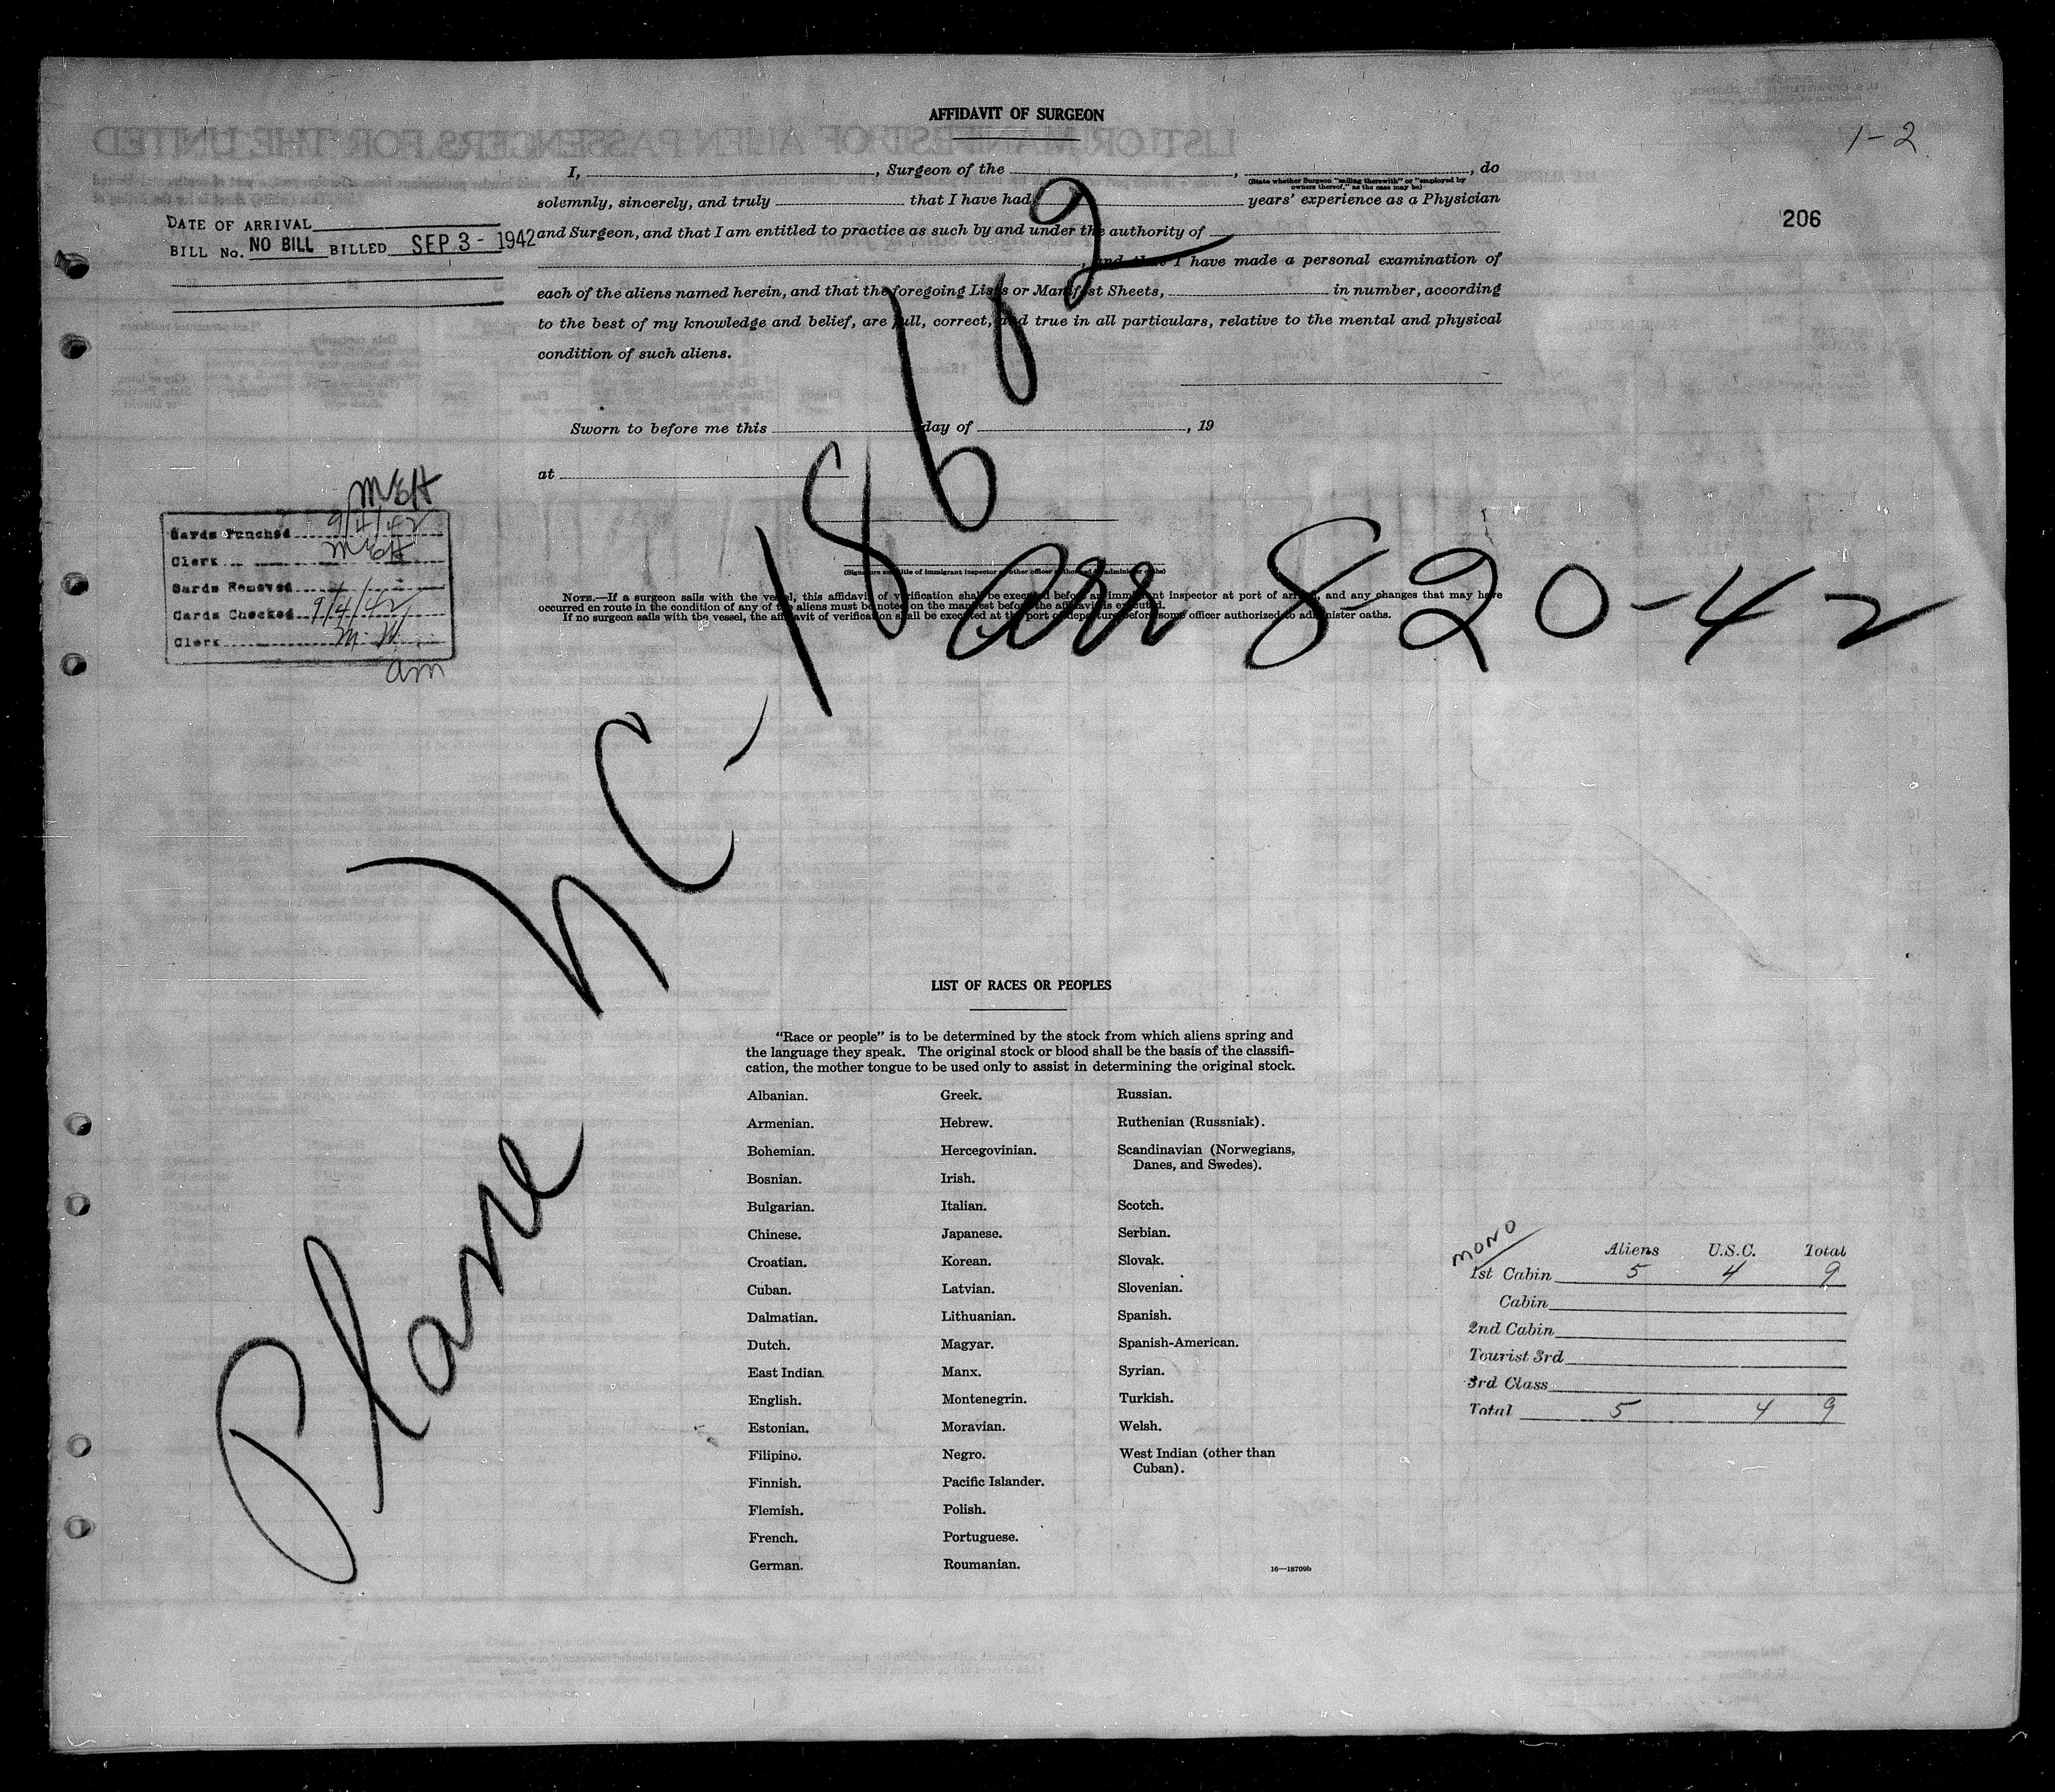 AFFIDAVIT OF SURGEON
1-2
206
I, , Surgeon of the , , do
(State whether Surgeon "sailing therewith" or "employed by owners thereof," as the case may be)
solemnly, sincerely, and truly that I have had years' experience as a Physician
and Surgeon, and that I am entitled to practice as such by and under the authority of
, and that I have made a personal examination of
each of the aliens named herein, and that the foregoing Lists or Manifest Sheets, in number, according
to the best of my knowledge and belief, are full, correct, and true in all particulars, relative to the mental and physical
condition of such aliens.
Sworn to before me this day of , 19
at
(Signature and title of immigrant inspector or other officer authorized to administer oaths)
NOTE.—If a surgeon sails with the vessel, this affidavit of verification shall be executed before an immigrant inspector at port of arrival, and any changes that may have
occurred en route in the condition of any of the aliens must be noted on the manifest before the affidavit is executed.
If no surgeon sails with the vessel, the affidavit of verification shall be executed at the port of departure before some officer authorized to administer oaths.
DATE OF ARRIVAL
BILL No. NO BILL BILLED SEP 3 - 1942
MEH
Cards Punched 9/4/42
Clerk MEH
Cards Removed
Cards Checked 9/4/42
Clerk M.W.
am
Plane NC-18602
arr 8-20-42
LIST OF RACES OR PEOPLES
"Race or people" is to be determined by the stock from which aliens spring and
the language they speak. The original stock or blood shall be the basis of the classifi-
cation, the mother tongue to be used only to assist in determining the original stock.
Albanian.
Armenian.
Bohemian.
Bosnian.
Bulgarian.
Chinese.
Croatian.
Cuban.
Dalmatian.
Dutch.
East Indian
English.
Estonian.
Filipino.
Finnish.
Flemish.
French.
German.
Greek.
Hebrew.
Hercegovinian.
Irish.
Italian.
Japanese.
Korean.
Latvian.
Lithuanian.
Magyar.
Manx.
Montenegrin.
Moravian.
Negro.
Pacific Islander.
Polish.
Portuguese.
Roumanian.
Russian.
Ruthenian (Russniak).
Scandinavian (Norwegians,
Danes, and Swedes).
Scotch.
Serbian.
Slovak.
Slovenian.
Spanish.
Spanish-American.
Syrian.
Turkish.
Welsh.
West Indian (other than
Cuban).
16—18709b
MONO
Aliens U.S.C. Total
1st Cabin 5 4 9
Cabin
2nd Cabin
Tourist 3rd
3rd Class
Total 5 4 9